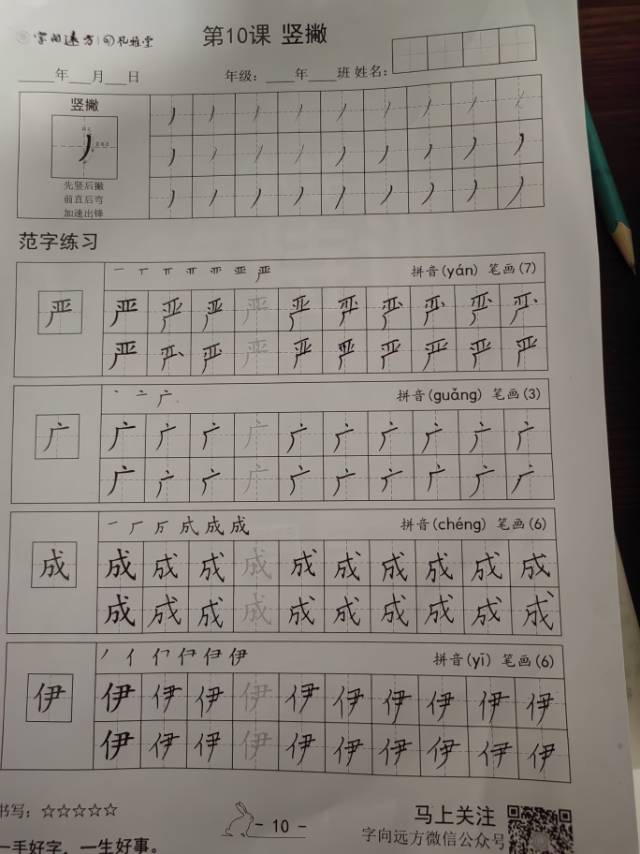 字向远方 第10课 竖撇
____年___月___日 年级：____年____班 姓名：
竖撇
先竖后撇
前直后弯
加速出锋
范字练习
拼音(yán) 笔画(7)
严 严 严 严 严 严 严 严 严 严 严
严 严 严 严 严 严 严 严 严 严
拼音(guǎng) 笔画(3)
广 广 广 广 广 广 广 广 广 广 广
广 广 广 广 广 广 广 广 广 广
拼音(chéng) 笔画(6)
成 成 成 成 成 成 成 成 成 成 成
成 成 成 成 成 成 成 成 成 成
拼音(yī) 笔画(6)
伊 伊 伊 伊 伊 伊 伊 伊 伊 伊 伊
伊 伊 伊 伊 伊 伊 伊 伊 伊 伊
书写：☆☆☆☆☆ - 10 - 马上关注
字向远方微信公众号
一手好字，一生好事。